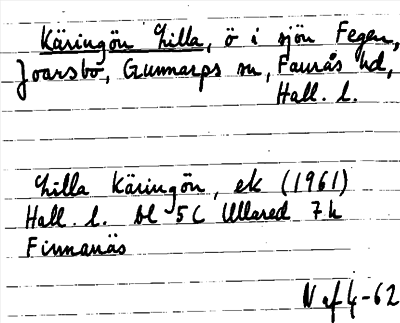 Käringön Lilla, ö i sjön Fegen,
Joarsbo, Gunnarps sn, Faurås hd,
Hall. l.
Lilla Käringön, ek (1961)
Hall. l. Bl 5C Ullared 7h
Finnanäs
N af 4-62